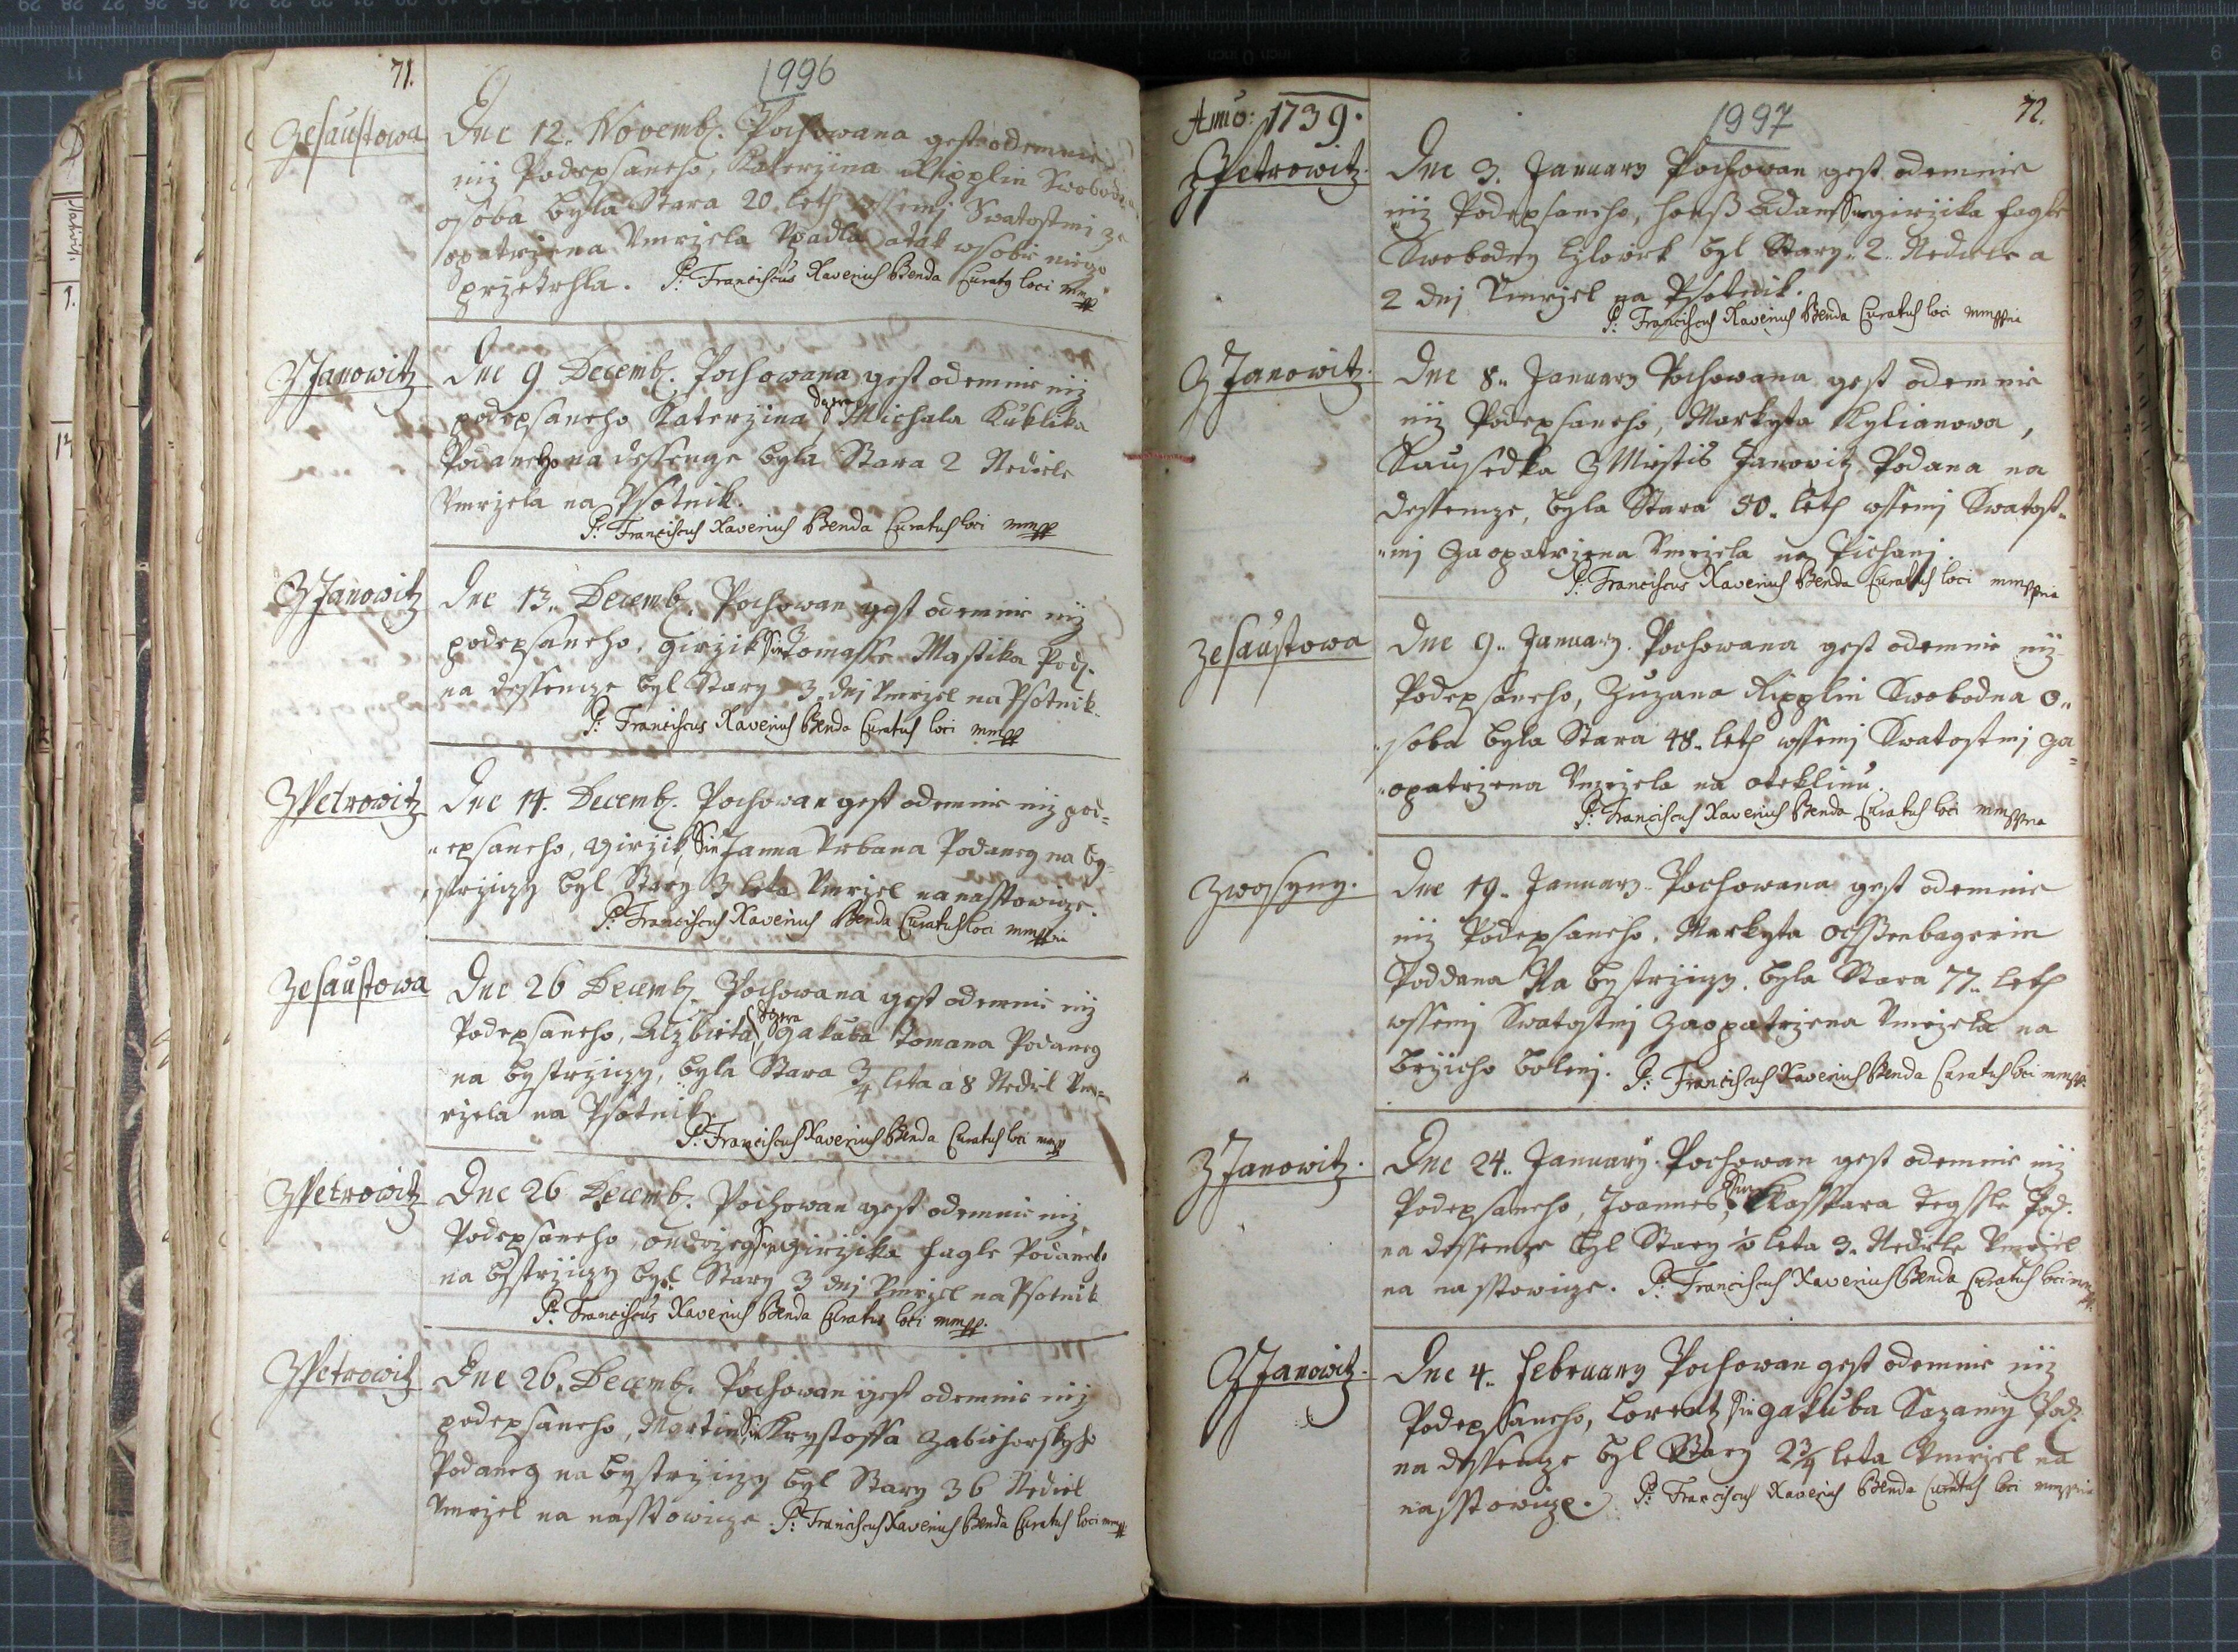 71.
1996
Zesaustowa
Dne 12. Novemb. Pochowana gest odemnie
niz Podepsaneho, Katerzina Ripplin Swobodna
osoba byla Stara 20. leth wssemj Swatostmi za
opatrzena Vmrzela Vpadla a tak w sobie niezo
przetrhla. P: Franciscus Xaverius Benda Curatus loci mmpp
ZJanowitz
Dne 9 Decemb. Pochowana gest odemnie niz
podepsaneho Katerzina dczera Michala Kuklika
Podaneho na dessenze byla Stara 2 Nediele
Vmrzela na Psotnik.
P: Franciscus Xaverius Benda Curatus loci mmpp
ZJanowitz
Dne 13. Decemb. Pochowan gest odemnie niz
podepsaneho, Girzik Sin Tomasse Mastika Pod.
na dessenze byl Stary 3. dnj Vmrzel na Psotnik.
P: Franciscus Xaverius Benda Curatus loci mmpp
ZPetrowitz
Dne 14. Decemb. Pochowan gest odemnie niz pod=
epsaneho, Girzik, Sin Janna Vrbana Podaneg na by=
strziczy byl Stary 3 leta Vmrzel na nasstowicze.
P: Franciscus Xaverius Benda Curatus loci mmppria
Zesaustowa
Dne 26 Decemb. Pochowana gest odemnie niz
Podepsaneho, Alzbieta, dczera Gakuba Tomana Podaneg
na bystrziczy, byla Stara 3/4 leta a 8 Nediel Vm=
rzela na Psotnik.
P: Franciscus Xaverius Benda Curatus loci mmpp
ZPetrowitz
Dne 26 Decemb. Pochowan gest odemnie niz
Podepsaneho, ondrzeg Sin Girzika fagle Podaneho
na bystrziczy byl Stary 3 dnj Vmrzel na Psotnik
P: Franciscus Xaverius Benda Curatus loci mmpp.
ZPetrowitz
Dne 26. Decemb. Pochowan gest odemnie niz
podepsaneho, Martin Sin Krystoffa Zabiehorskyho
Podaneg na bystrziczy byl Stary 36 Nediel
Vmrzel na nasstowicze. P: Franciscus Xaverius Benda Curatus loci mmpp
Anno: 1739.
1997
72.
ZPetrowitz.
Dne 3. January Pochowan gest odemnie
niz Podepsaneho, Hanß Adam Sin Girzika fagle
Swobodny czlowiek byl Stary. 2. Nediele a
2 dnj Vmrzel na Psotnik.
P: Franciscus Xaverius Benda Curatus loci mmppria
ZJanowitz.
Dne 8. January Pochowana gest odemnie
niz Podepsaneho, Markyta Kylianowa,
Sausedka z Miestis Janowitz Podana na
dessenze, byla Stara 50. leth wssemj Swatost=
mj Zaopatrzena Vmrzela na Pichanj.
P: Franciscus Xaverius Benda Curatus loci mmppria
Zesaustowa
Dne 9. January. Pochowana gest odemnie niz
Podepsaneho, Zuzana Ripplin Swobodna o=
soba byla Stara 48. leth wssemj Swatostmj za=
opatrzena Vmrzela na oteklinu.
P: Franciscus Xaverius Benda Curatus loci mmppria
Zwosyny.
Dne 19. January. Pochowana gest odemnie
niz Podepsaneho, Markyta Ochssenbagerin
Poddana Na bystrziczy. byla Stara 77. leth
wssemj Swatostmj Zaopatrzena Vmrzela na
brzicho bolenj. P: Franciscus Xaverius Benda Curatus loci mmpp.
ZJanowitz.
Dne 24. January. Pochowan gest odemnie niz
Podepsaneho, Joannes, Sin Kasspara Tegssle Pod.
na dessenze byl Stary leta 3. Nediele Vmrzel
na nasstowicze. P: Franciscus Xaverius Benda Curatus loci mmpp.
ZJanowitz.
Dne 4. February Pochowan gest odemnie niz
Podepsaneho, Lorentz Sin Gakuba Sazamy Pod.
na dessenze byl Stary 2 3/4 leta Vmrzel na
nasstowicze. P: Franciscus Xaverius Benda Curatus loci mmppria